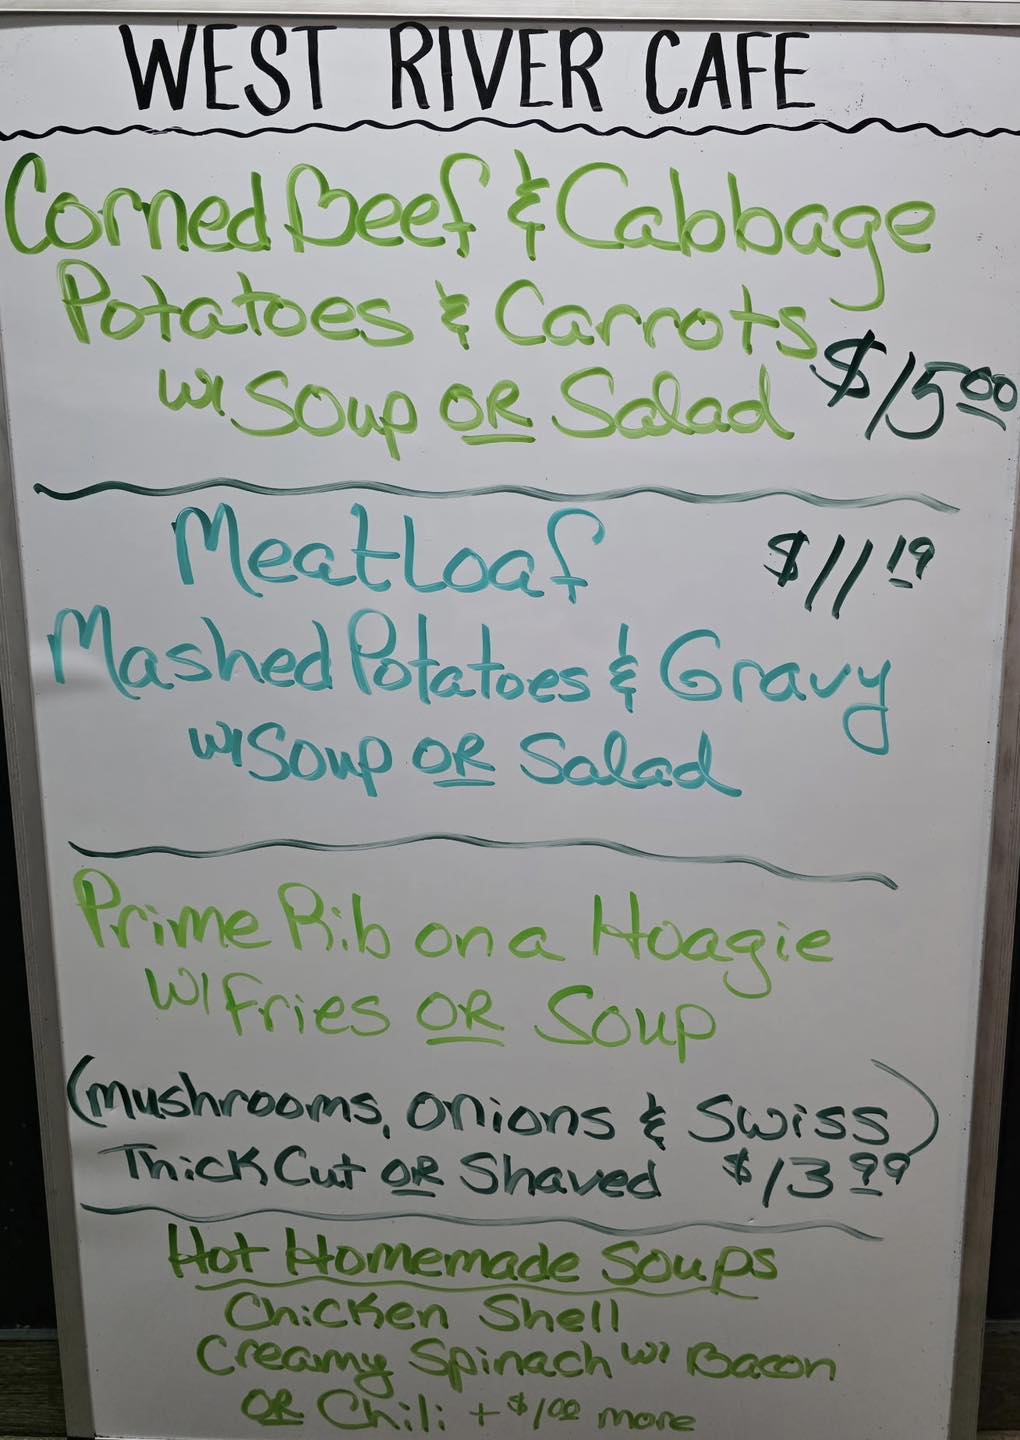 WEST RIVER CAFE
Corned Beef & Cabbage
Potatoes & Carrots
w/ Soup OR Salad $15.00
Meatloaf $11.19
Mashed Potatoes & Gravy
w/ Soup OR Salad
Prime Rib on a Hoagie
w/ Fries OR Soup
(Mushrooms, Onions & Swiss)
Thick Cut OR Shaved $13.99
Hot Homemade Soups
Chicken Shell
Creamy Spinach w/ Bacon
OR Chili + $1.00 more